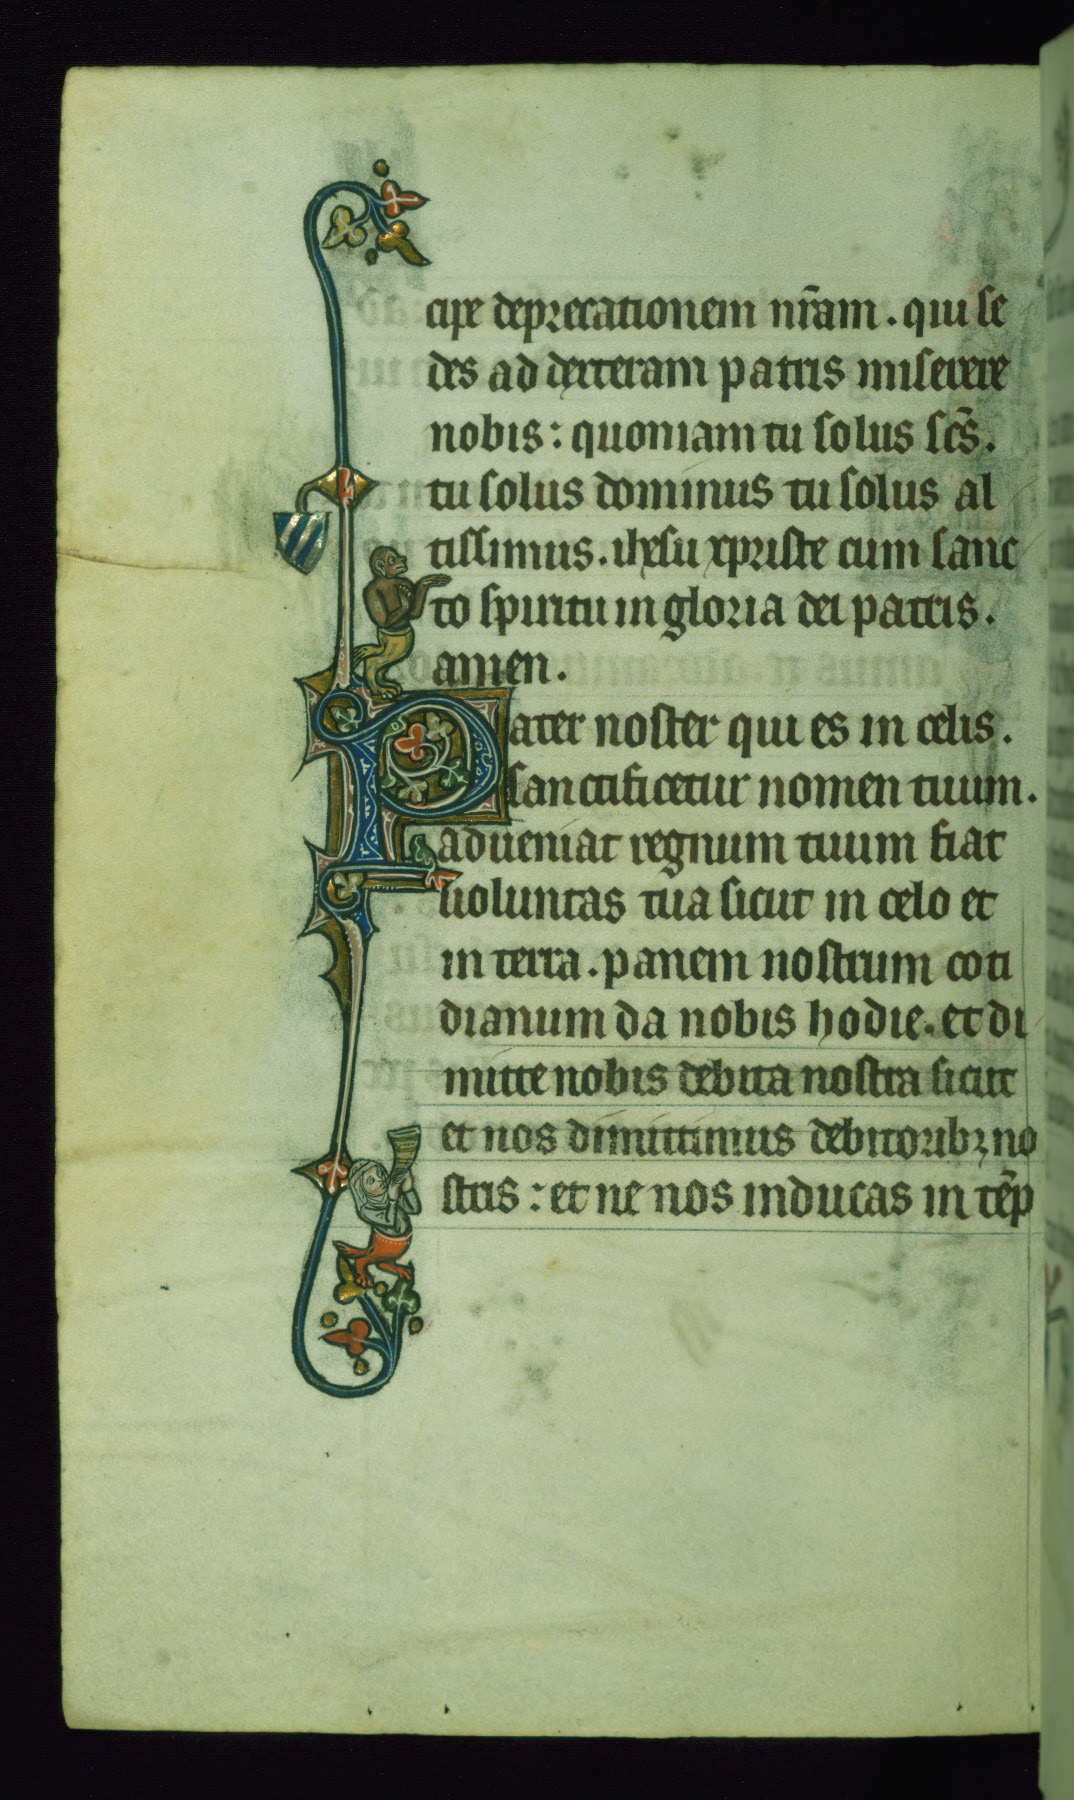 cipe deprecationem nr̄am. qui se
des ad dexteram patris miserere
nobis: quoniam tu solus sc̄s.
tu solus dominus tu solus al
tissimus. ihesu xpriste cum sanc
to spiritu in gloria dei patris.
amen.
Pater noster qui es in celis.
sanctificetur nomen tuum.
adueniat regnum tuum fiat
uoluntas tua sicut in celo et
in terra. panem nostrum coti
dianum da nobis hodie. et di
mitte nobis debita nostra sicut
et nos dimittimus debitoribꝫ no
stris: et ne nos inducas in tēp